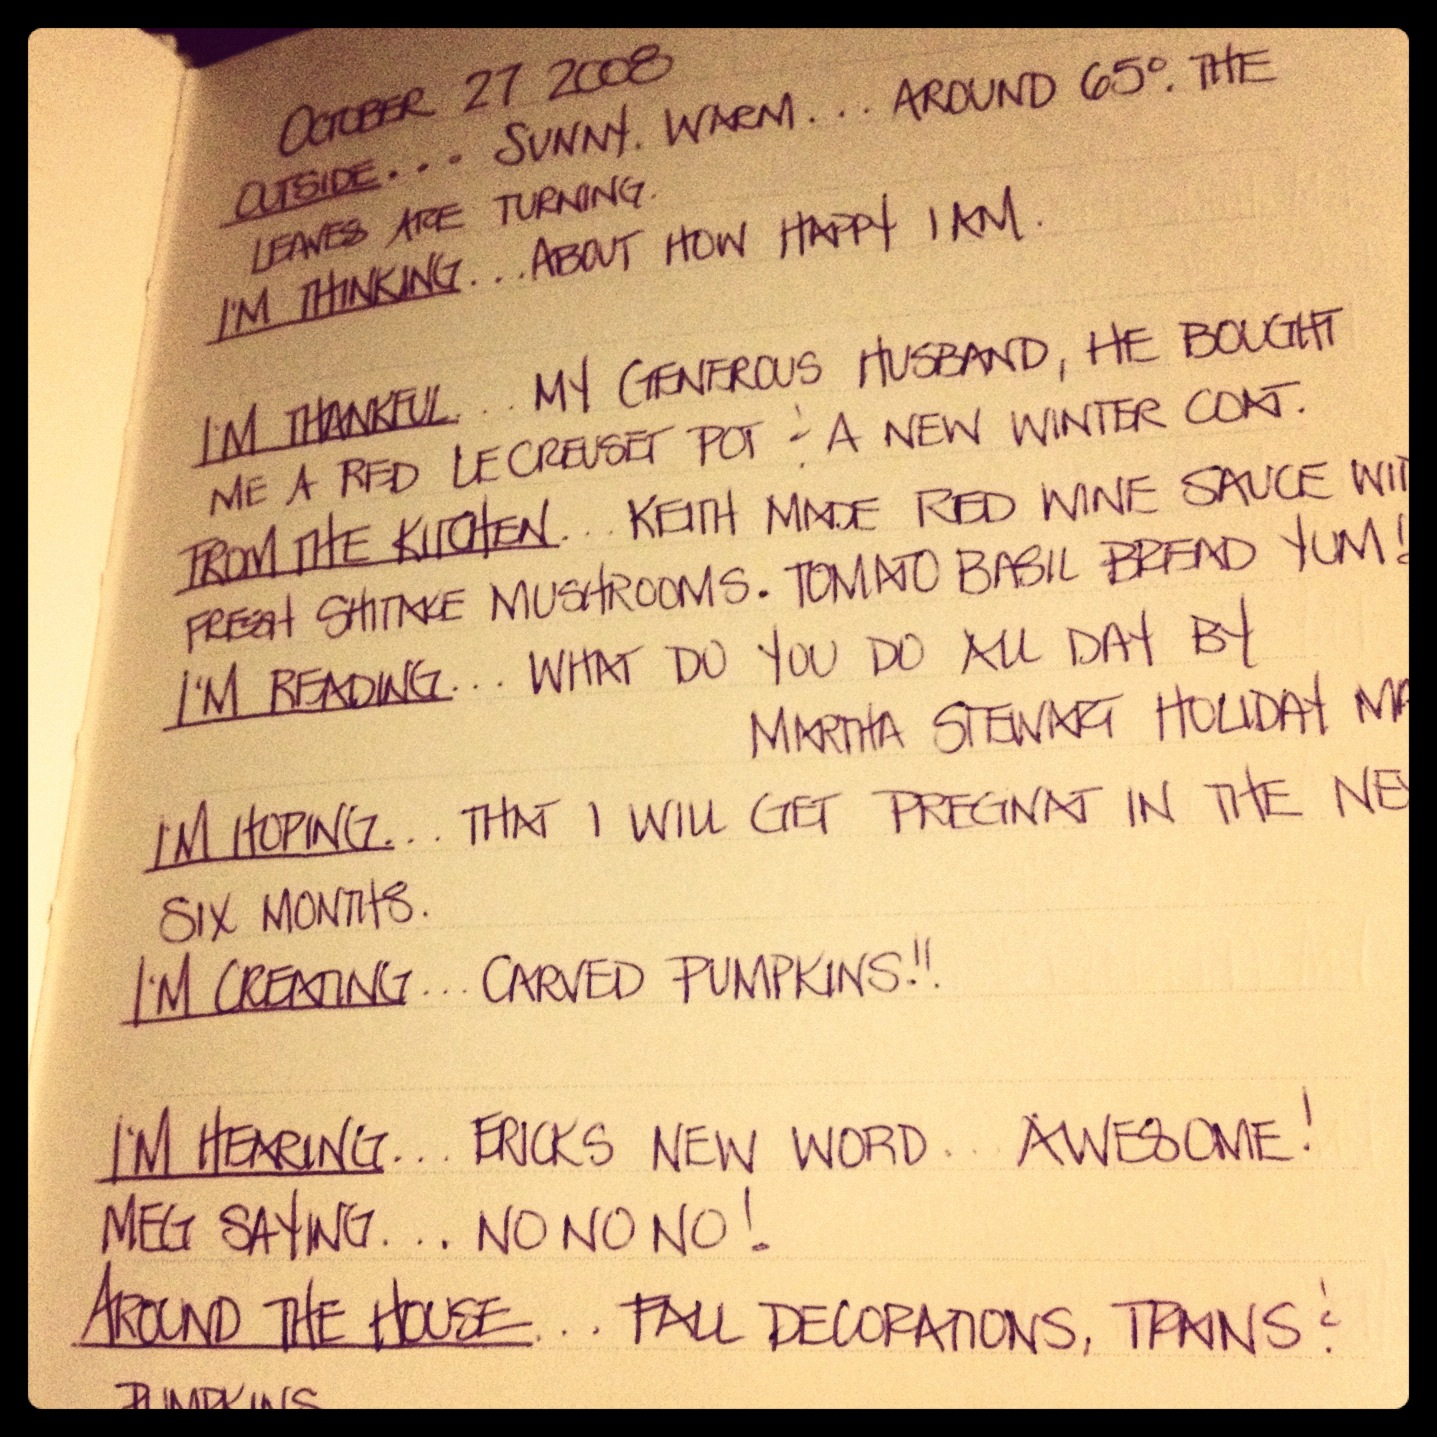 OCTOBER 27 2008
OUTSIDE... SUNNY. WARM... AROUND 65°. THE
LEAVES ARE TURNING.
I'M THINKING...ABOUT HOW HAPPY I AM.
I'M THANKFUL... MY GENEROUS HUSBAND, HE BOUGHT
ME A RED LE CREUSET POT & A NEW WINTER COAT.
FROM THE KITCHEN... KEITH MADE RED WINE SAUCE WIT
FRESH SHITAKE MUSHROOMS. TOMATO BASIL BREAD YUM!
I'M READING... WHAT DO YOU DO ALL DAY BY
MARTHA STEWART HOLIDAY MA
I'M HOPING... THAT I WILL GET PREGNAT IN THE NE
SIX MONTHS.
I'M CREATING... CARVED PUMPKINS!!
I'M HEARING... ERICKS NEW WORD... AWESOME!
MEG SAYING... NO NO NO!
AROUND THE HOUSE... FALL DECORATIONS, TRAINS &
PUMPKINS